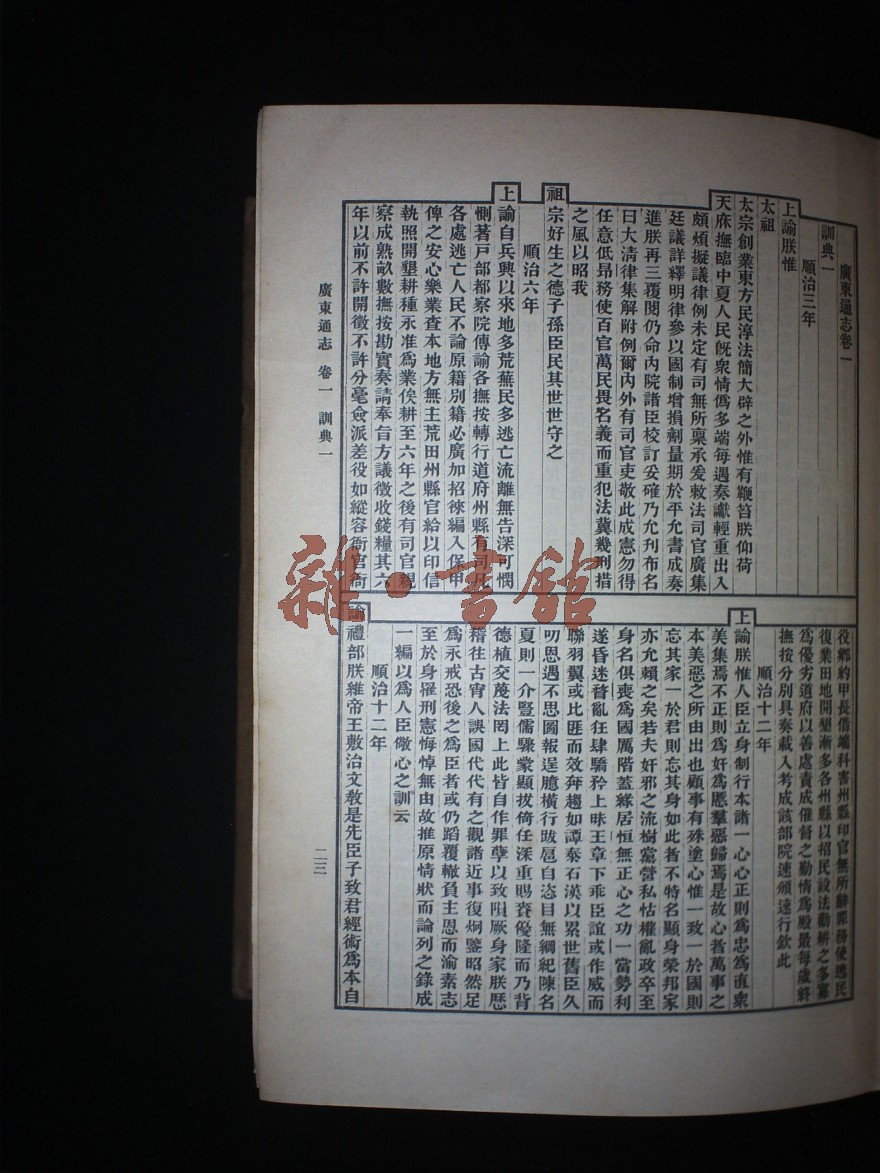 廣東通志卷一
訓典一
順治三年
上諭朕惟
太祖
太宗創業東方民淳法簡大辟之外惟有鞭笞朕仰荷
天庥撫臨中夏人民旣衆情僞多端每遇奏讞輕重出入
頗煩擬議律例未定有司無所稟承爰敕法司官廣集
廷議詳釋明律參以國制增損劑量期於平允書成奏
進朕再三覆閱仍命內院諸臣校訂妥確乃允刊布名
曰大淸律集解附例爾內外有司官吏敬此成憲勿得
任意低昻務使百官萬民畏名義而重犯法冀幾刑措
之風以昭我
祖宗好生之德子孫臣民其世世守之
順治六年
上諭自兵興以來地多荒蕪民多逃亡流離無告深可憫
惻著戶部都察院傳諭各撫按轉行道府州縣有司凡
各處逃亡人民不論原籍別籍必廣加招徠編入保甲
俾之安心樂業查本地方無主荒田州縣官給以印信
執照開墾耕種永准爲業俟耕至六年之後有司官親
察成熟畝數撫按勘實奏請奉旨方議徵收錢糧其六
年以前不許開徵不許分毫僉派差役如縱容衙官衙
役鄕約甲長借端科害州縣印官無所辭罪務使逃民
復業田地開墾漸多各州縣以招民設法勸耕之多寡
爲優劣道府以善處責成催督之勤惰爲殿最每歲終
撫按分別具奏載入考成該部院速頒速行欽此
順治十二年
上諭朕惟人臣立身制行本諸一心心正則爲忠爲直衆
美集焉不正則爲奸爲慝羣惡歸焉是故心者萬事之
本美惡之所由出也顧事有殊塗心惟一致一於國則
忘其家一於君則忘其身如此者不特名顯身榮邦家
亦允賴之矣若夫奸邪之流樹黨營私怙權亂政卒至
身名俱喪爲國厲階蓋緣居恒無正心之功一當勢利
遂昏迷瞀亂狂肆驕矜上昧王章下乖臣誼或作威而
聯羽翼或比匪而效奔趨如譚泰石漢以累世舊臣久
叨恩遇不思圖報逞臆橫行跋扈自恣目無綱紀陳名
夏則一介豎儒驟蒙顯拔倚任深重賜賚優隆而乃背
德植交蔑法罔上此皆自作罪孽以致隕厥身家朕歷
稽往古宵人誤國代代有之觀諸近事復炯鑒昭然足
爲永戒恐後之爲臣者或仍蹈覆轍負主恩而渝素志
至於身罹刑憲悔悼無由故推原情狀而論列之錄成
一編以爲人臣儆心之訓云
順治十二年
諭禮部朕維帝王敷治文敎是先臣子致君經術爲本自
廣東通志 卷一 訓典一
二三
雜·書館